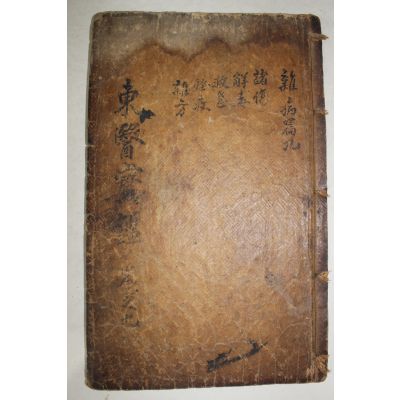 雜病篇九
諸傷
解毒
救急
怪疾
雜方
東醫寶鑑